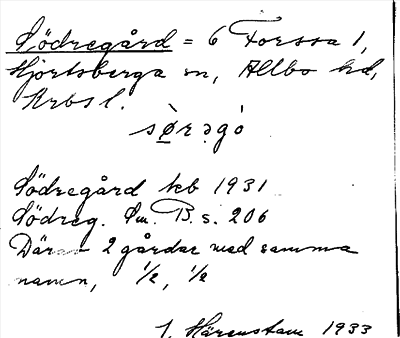 Södregård = 6 Forssa 1,
Hjortsberga sn, Allbo hd,
Krbs l.
sø̀rəgó
Södregård kb 1931
Södreg. Sm. B. s. 206
Där 2 gårdar med samma
namn, 1/2, 1/2
J. Härenstam 1933